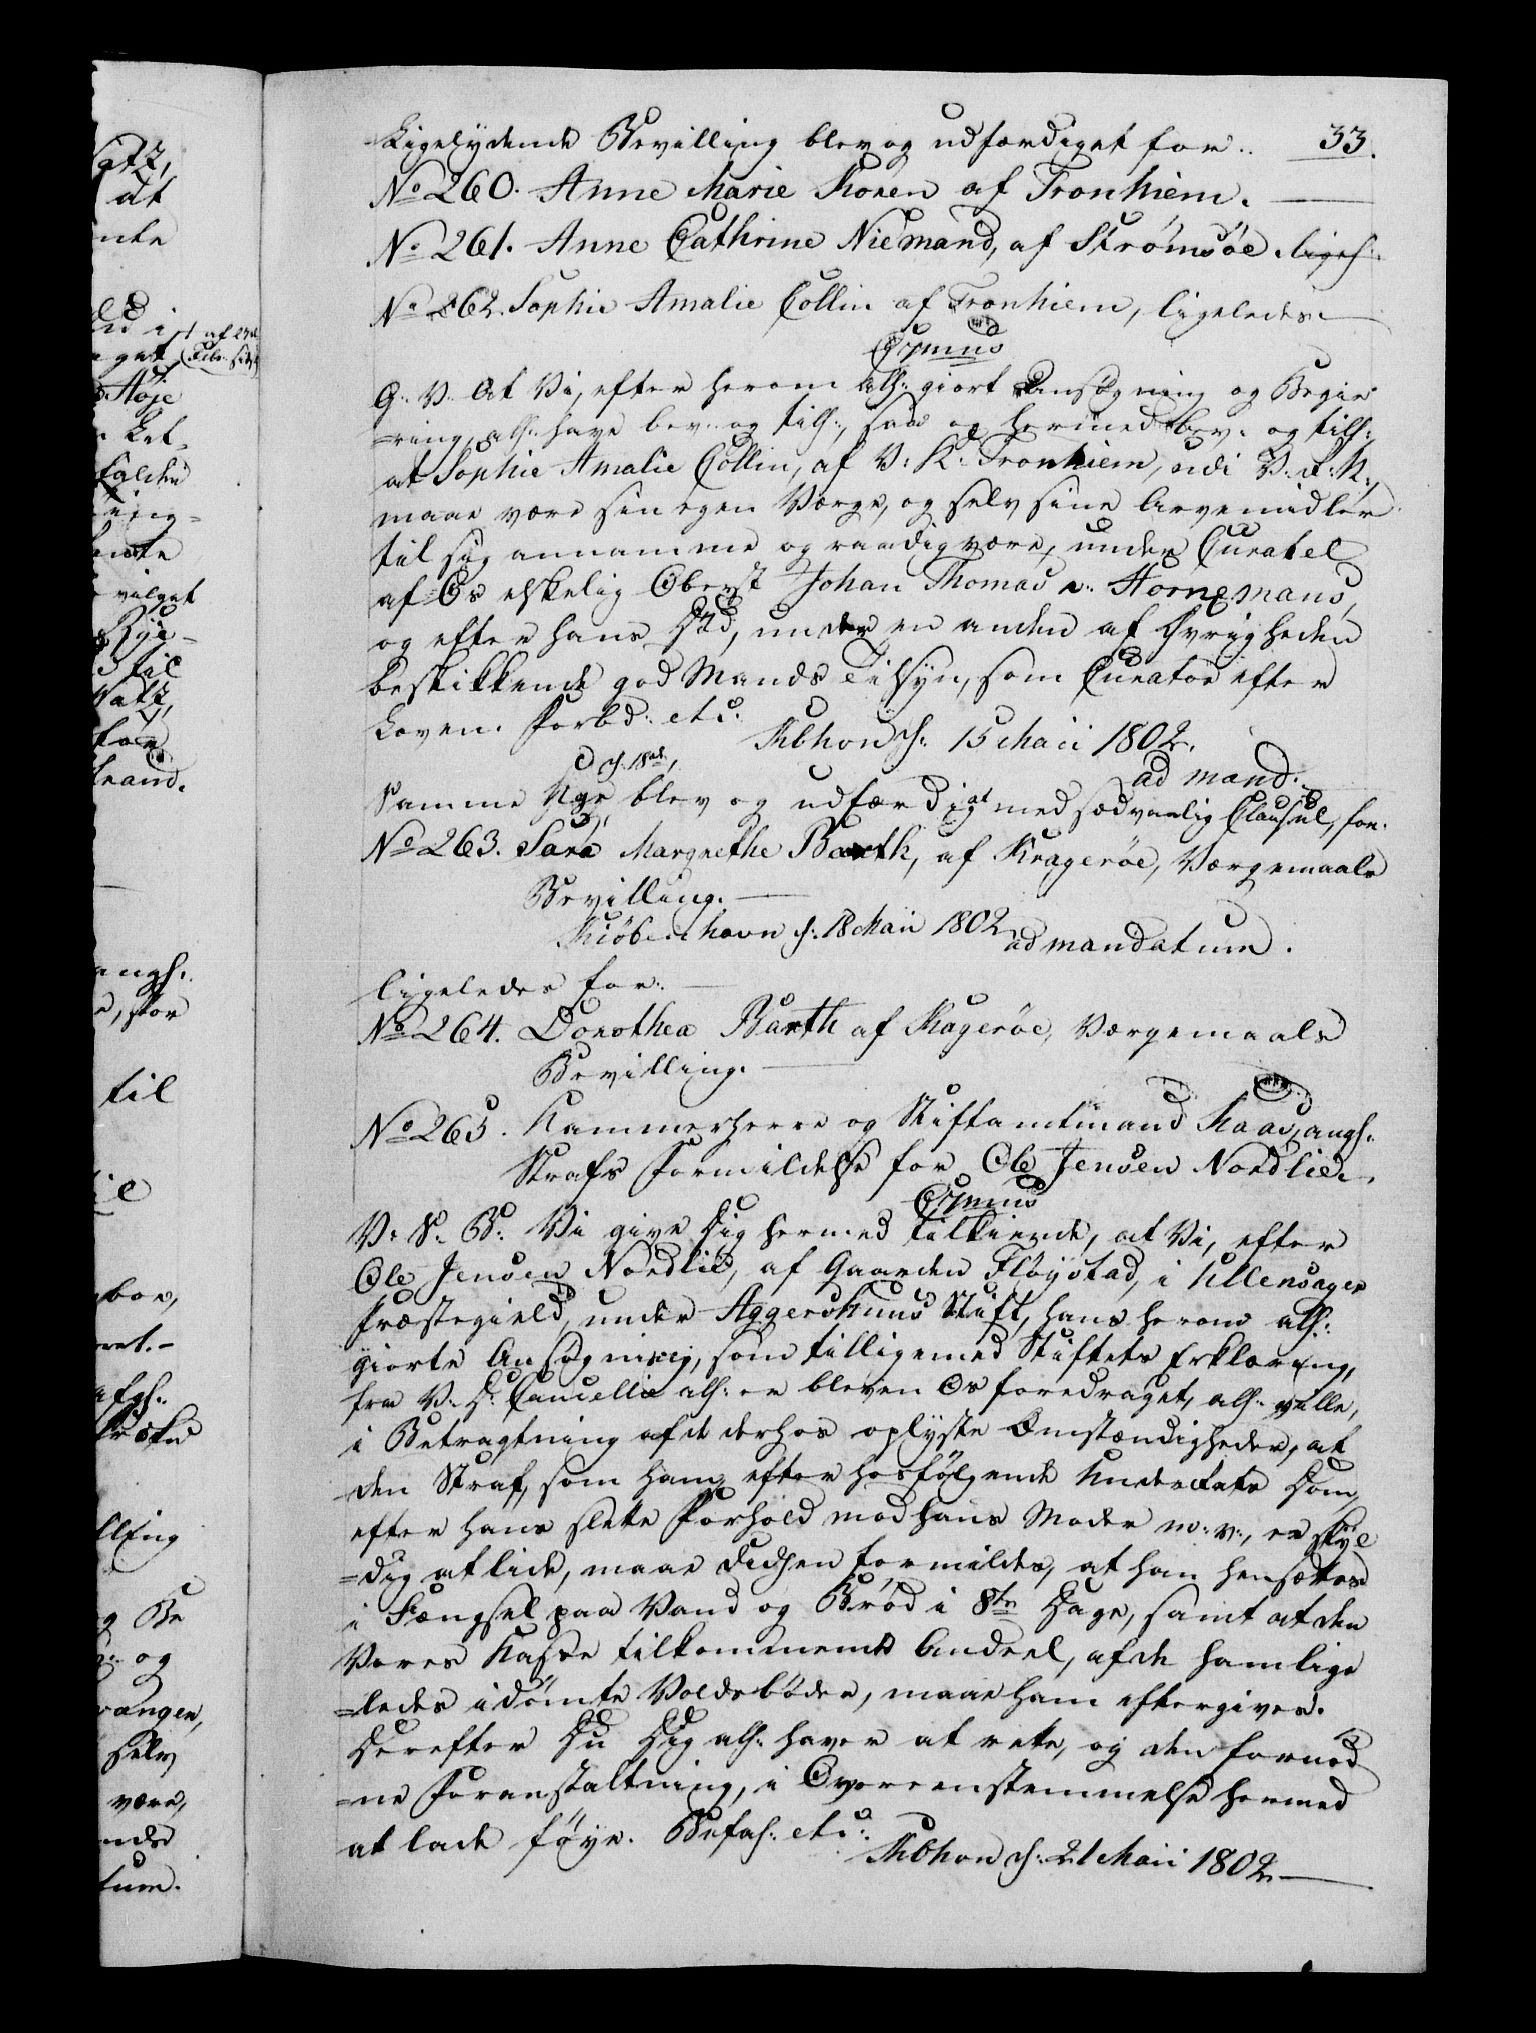 33.
Ligelydende Bevilling blev og udfærdiget for..
No 260. Anne Marie Koren af Tronhiem.
No 261. Anne Cathrine Niemand, af Strømsøe. ligel:
No 262. Sophie Amalie Collin af Tronhiem, ligeledes.
G. V. At Vi, efter herom all: giort Ansøgning og Begie
=ring, all: have bev: og till:, saa og hermed bev: og till:,
at Sophie Amalie Collin, af V: K: Tronhiem, udi V: R: N:,
maae være sin egen Værge, og selv sine Arvemidler
til sig annamme og raadig være, under Curatel
af Os elskelig Oberst Johan Thomas v: Hornemans,
og efter hans Død, under en anden af Øvrigheden
beskikkende god Mands Tilsyn, som Curator efter
Loven. Forbd: etc.
Kbhvn d: 15 Maii 1802.
ad mand.
d. 18de,
Samme blev og udfærdiget med sædvanlig Clausul, for.
No 263. Sara Margrethe Barth, af Kragerøe, Værgemaals
Bevilling.
Kiøbenhavn d: 18 Maii 1802
ad mandatum.
ligeledes for.
No 264. Dorothea Barth af Kragerøe, Værgemaals
Bevilling.
No 265. Kammerherre og Stiftamtmand Kaas, angl:
Strafs Formildelse for Ole Jensen Nordlie.
V: S: B: Vi give Dig hermed tilkiende, at Vi, efter
Ole Jensen Nordlie, af Gaarden Fløystad, i Ullensager
Præstegield, under Aggershuus Stift, hans herom all:
giorte Ansøgning, som tilligemed Stiftets Erklæring,
fra V: D: Cancellie all: er bleven Os foredraget, all: ville,
i Betragtning af de derhos oplyste Omstændigheder, at
den Straf, som ham, efter hosfølgende Underrets Dom,
efter hans slette Forhold mod hans Moder m: v:, er skyl
=dig at lide, maae derhen formildes, at han hensættes
i Fængsel paa Vand og Brød i 8te Dage, samt at den
Vores Kasse tilkommende Andeel, af de ham lige
=ledes idømte Voldsbøder, maae ham eftergives.
Derefter Du Dig all: haver at rette, og den fornød
=ne Foranstaltning, i Overeenstemmelse hermed
at lade føye. Befal: etc.
Kbhvn d: 21 Maii 1802